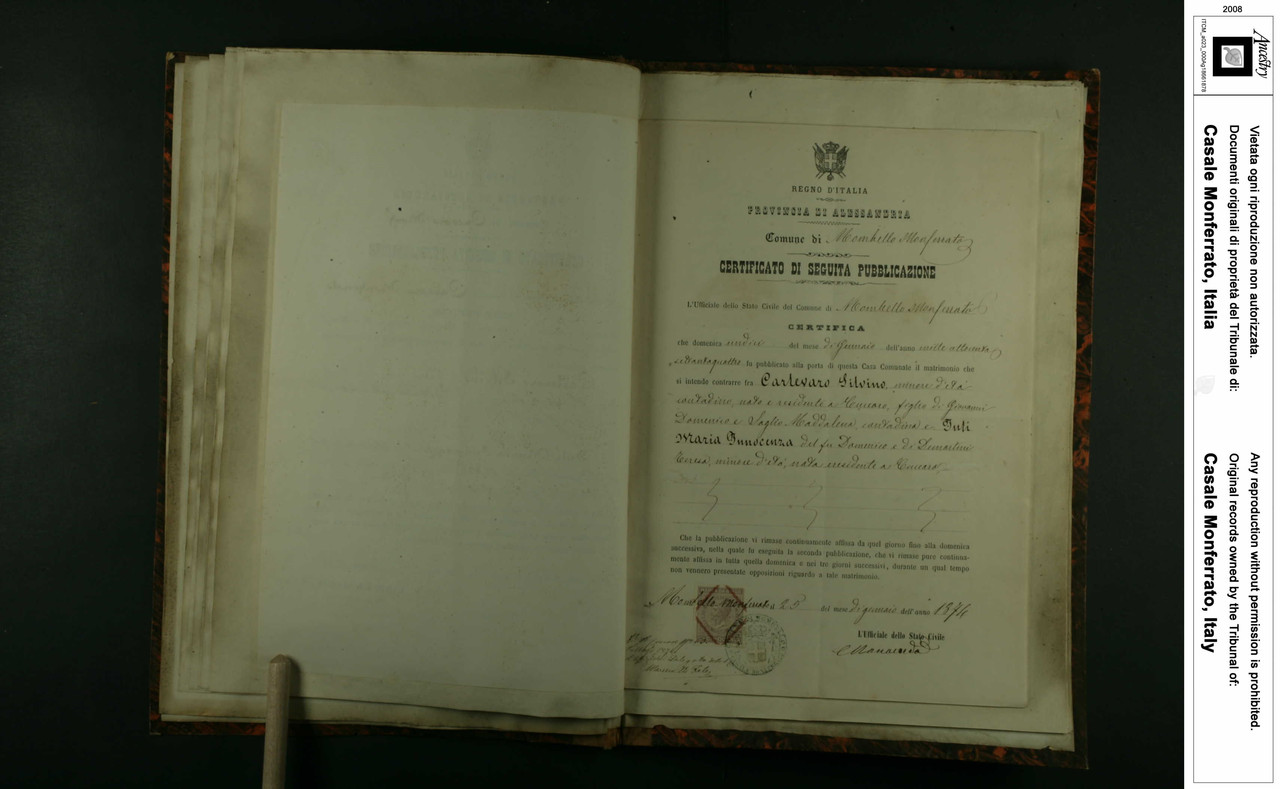 REGNO D'ITALIA
PROVINCIA DI ALESSANDRIA
Comune di Mombello Monferrato
CERTIFICATO DI SEGUITA PUBBLICAZIONE
L'Ufficiale dello Stato Civile del Comune di Mombello Monferrato
CERTIFICA
che domenica undici del mese di Gennaio dell'anno mille ottocento
settantaquattro fu pubblicato alla porta di questa Casa Comunale il matrimonio che
si intende contrarre fra Cartevaro Silvino, minore d'età
contadino, nato e residente a, figlio di Giovanni
Domenico e Maddalena, contadina e
Maria Innocenza del fu Domenico e di Demartini
Teresa, minore d'età, nata e residente a
Che la pubblicazione vi rimase continuamente affissa da quel giorno fino alla domenica
successiva, nella quale fu eseguita la seconda pubblicazione, che vi rimase pure continua-
mente affissa in tutta quella domenica e nei tre giorni successivi, durante un qual tempo
non vennero presentate opposizioni riguardo a tale matrimonio.
Mombello Monferrato a 25 del mese di gennaio dell'anno 1874
L'Ufficiale dello Stato Civile
2008
Ancestry
Vietata ogni riproduzione non autorizzata.
Documenti originali di proprietà del Tribunale di:
Casale Monferrato, Italia
Any reproduction without permission is prohibited.
Original records owned by the Tribunal of:
Casale Monferrato, Italy